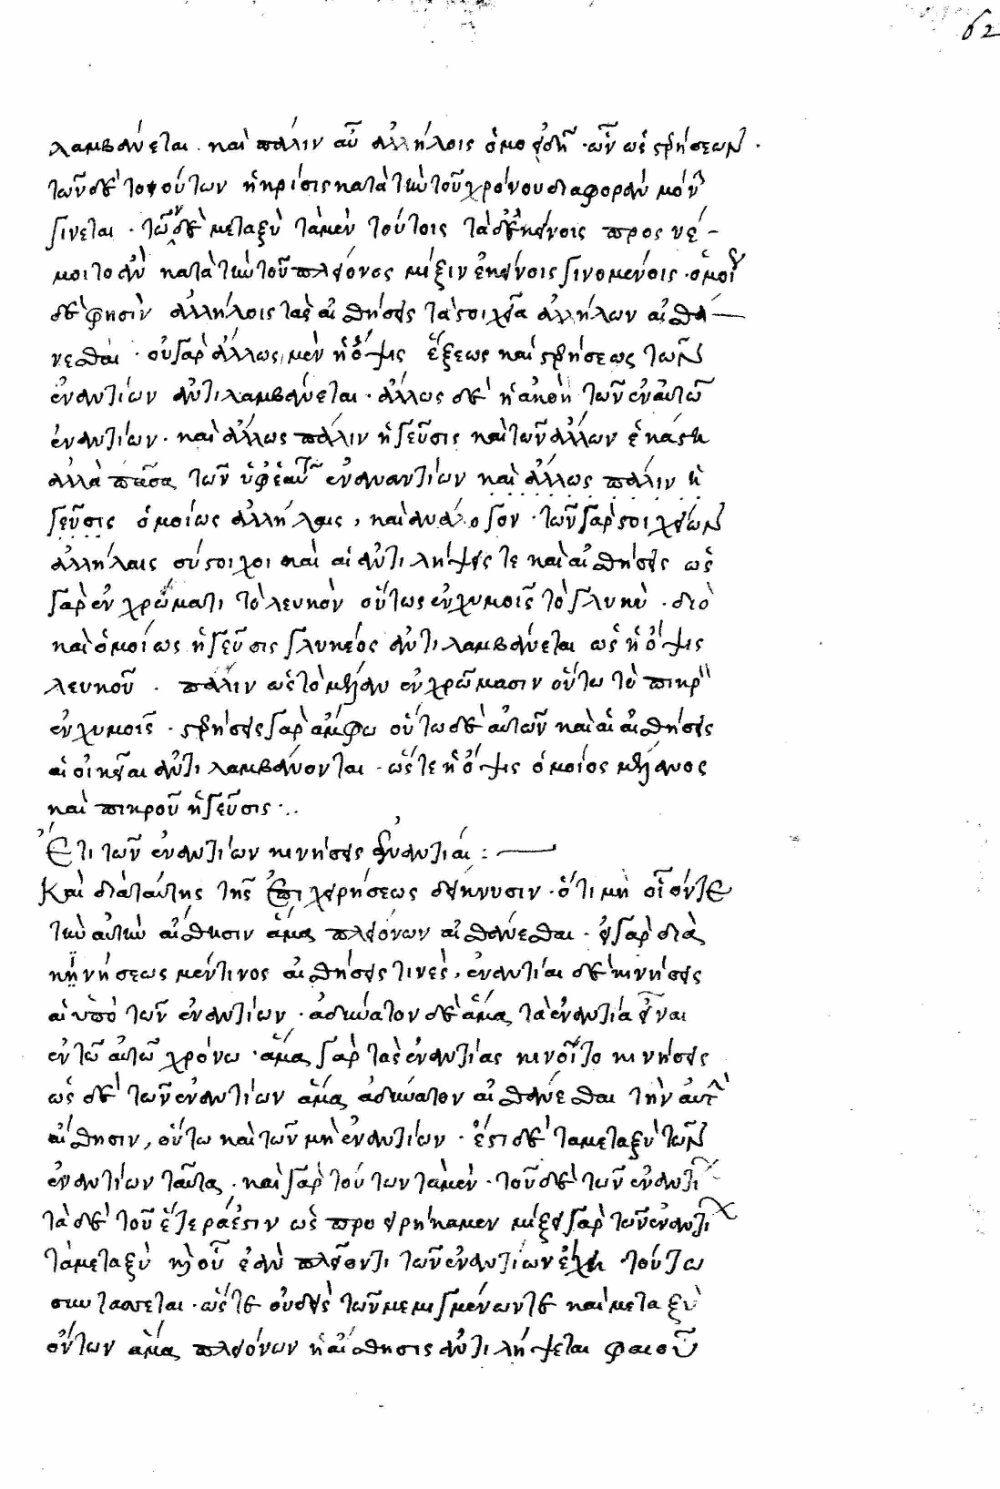 62
λαμβάνεται. καὶ πάλιν αὖ ἀλλήλοις ὁμοειδῆ. ὧν ὡς στερήσεων.
τῶν δὲ τοιούτων ἡ κρίσις κατὰ τὴν τοῦ χρόνου διαφορὰν μόν
γίνεται. τῶν δὲ μεταξὺ τὰ μὲν τούτοις τὰ δὲ κείνοις προς νέ-
μοιτο ἂν κατὰ τὴν τοῦ πλείονος μίξιν ἐκείνοις γινομένοις. ὁμοί
δέ φησιν ἀλλήλοις τὰς αἰσθήσεις τὰ στοιχεῖα ἀλλήλων αἰσθά-
νεσθαι. οὐ γὰρ ἄλλως μὲν ἡ ὄψις ἕξεως καὶ στερήσεως τῶν
ἐναντίων ἀντιλαμβάνεται. ἄλλως δὲ ἡ ἀκοὴ τῶν ἐν αὐτῶ
ἐναντίων. καὶ ἄλλως πάλιν ἡ γεῦσις καὶ τῶν ἄλλων ἑκάστη
ἀλλὰ πᾶσα τῶν ὑφ' ἑαυτ ἐναντίων καὶ ἄλλως πάλιν ἡ
γεῦσις ὁμοίως ἀλλήλαις, καὶ ἀνάλογον. τῶν γὰρ στοιχείων
ἀλλήλαις σύστοιχοι καὶ αἱ ἀντιλήψεις τε καὶ αἰσθήσεις ὡς
γὰρ ἐν χρώματι τὸ λευκὸν οὕτως ἐν χυμοῖς τὸ γλυκύ. διὸ
καὶ ὁμοίως ἡ γεῦσις γλυκέος ἀντιλαμβάνεται ὡς ἡ ὄψις
λευκοῦ. πάλιν ὡς τὸ μέλαν ἐν χρώμασιν οὕτω τὸ πικρ
ἐν χυμοῖς. στερήσεις γὰρ ἄμφω οὕτω δὲ αὐτῶν καὶ αἱ αἰσθήσεις
αἱ οἰκεῖαι ἀντιλαμβάνονται. ὥστε ἡ ὄψις ὁμοίος μέλανος
καὶ πικροῦ ἡ γεῦσις.
Ἔτι τῶν ἐναντίων κινήσεις ἐναντίαι:
Καὶ διὰ ταύτης τῆς ἐπιχειρήσεως δείκνυσιν. ὅτι μὴ οἷόν τε
τὴν αὐτὴν αἴσθησιν ἅμα πλειόνων αἰσθάνεσθαι. εἰ γὰρ διὰ
κινήσεως μέν τινος αἰσθήσεις τινές, ἐναντίαι δὲ κινήσεις
αἱ ὑπὸ τῶν ἐναντίων. ἀδύνατον δὲ ἅμα τὰ ἐναντία εἶναι
ἐν τῶ αὐτῶ χρόνω. ἅμα γὰρ τὰς ἐναντίας κινοῖτο κινήσεις
ὡς δὲ τῶν ἐναντίων ἅμα ἀδύνατον αἰσθάνεσθαι τὴν αὐτ
αἴσθησιν, οὕτω καὶ τῶν μὴ ἐναντίων. ἔστι δὲ τὰ μεταξὺ τῶν
ἐναντίων ταῦτα. καὶ γὰρ τούτων τὰ μὲν. τοῦ δὲ τῶν ἐναντί
τὰ δὲ τοῦ ἑτέρα ἐστιν ὡς προειρήκαμεν μίξει γὰρ τῶν ἐναντί
τὰ μεταξὺ καὶ οὗ ἐὰν πλεῖον τι τῶν ἐναντίων ἔχη τούτω
συντάσσεται. ὥστε οὐδὲ τῶν μεμιγμένων τε καὶ μεταξὺ
ὄντων ἅμα πλειόνων ἡ αἴσθησις ἀντιλήψεται φαιοῦ